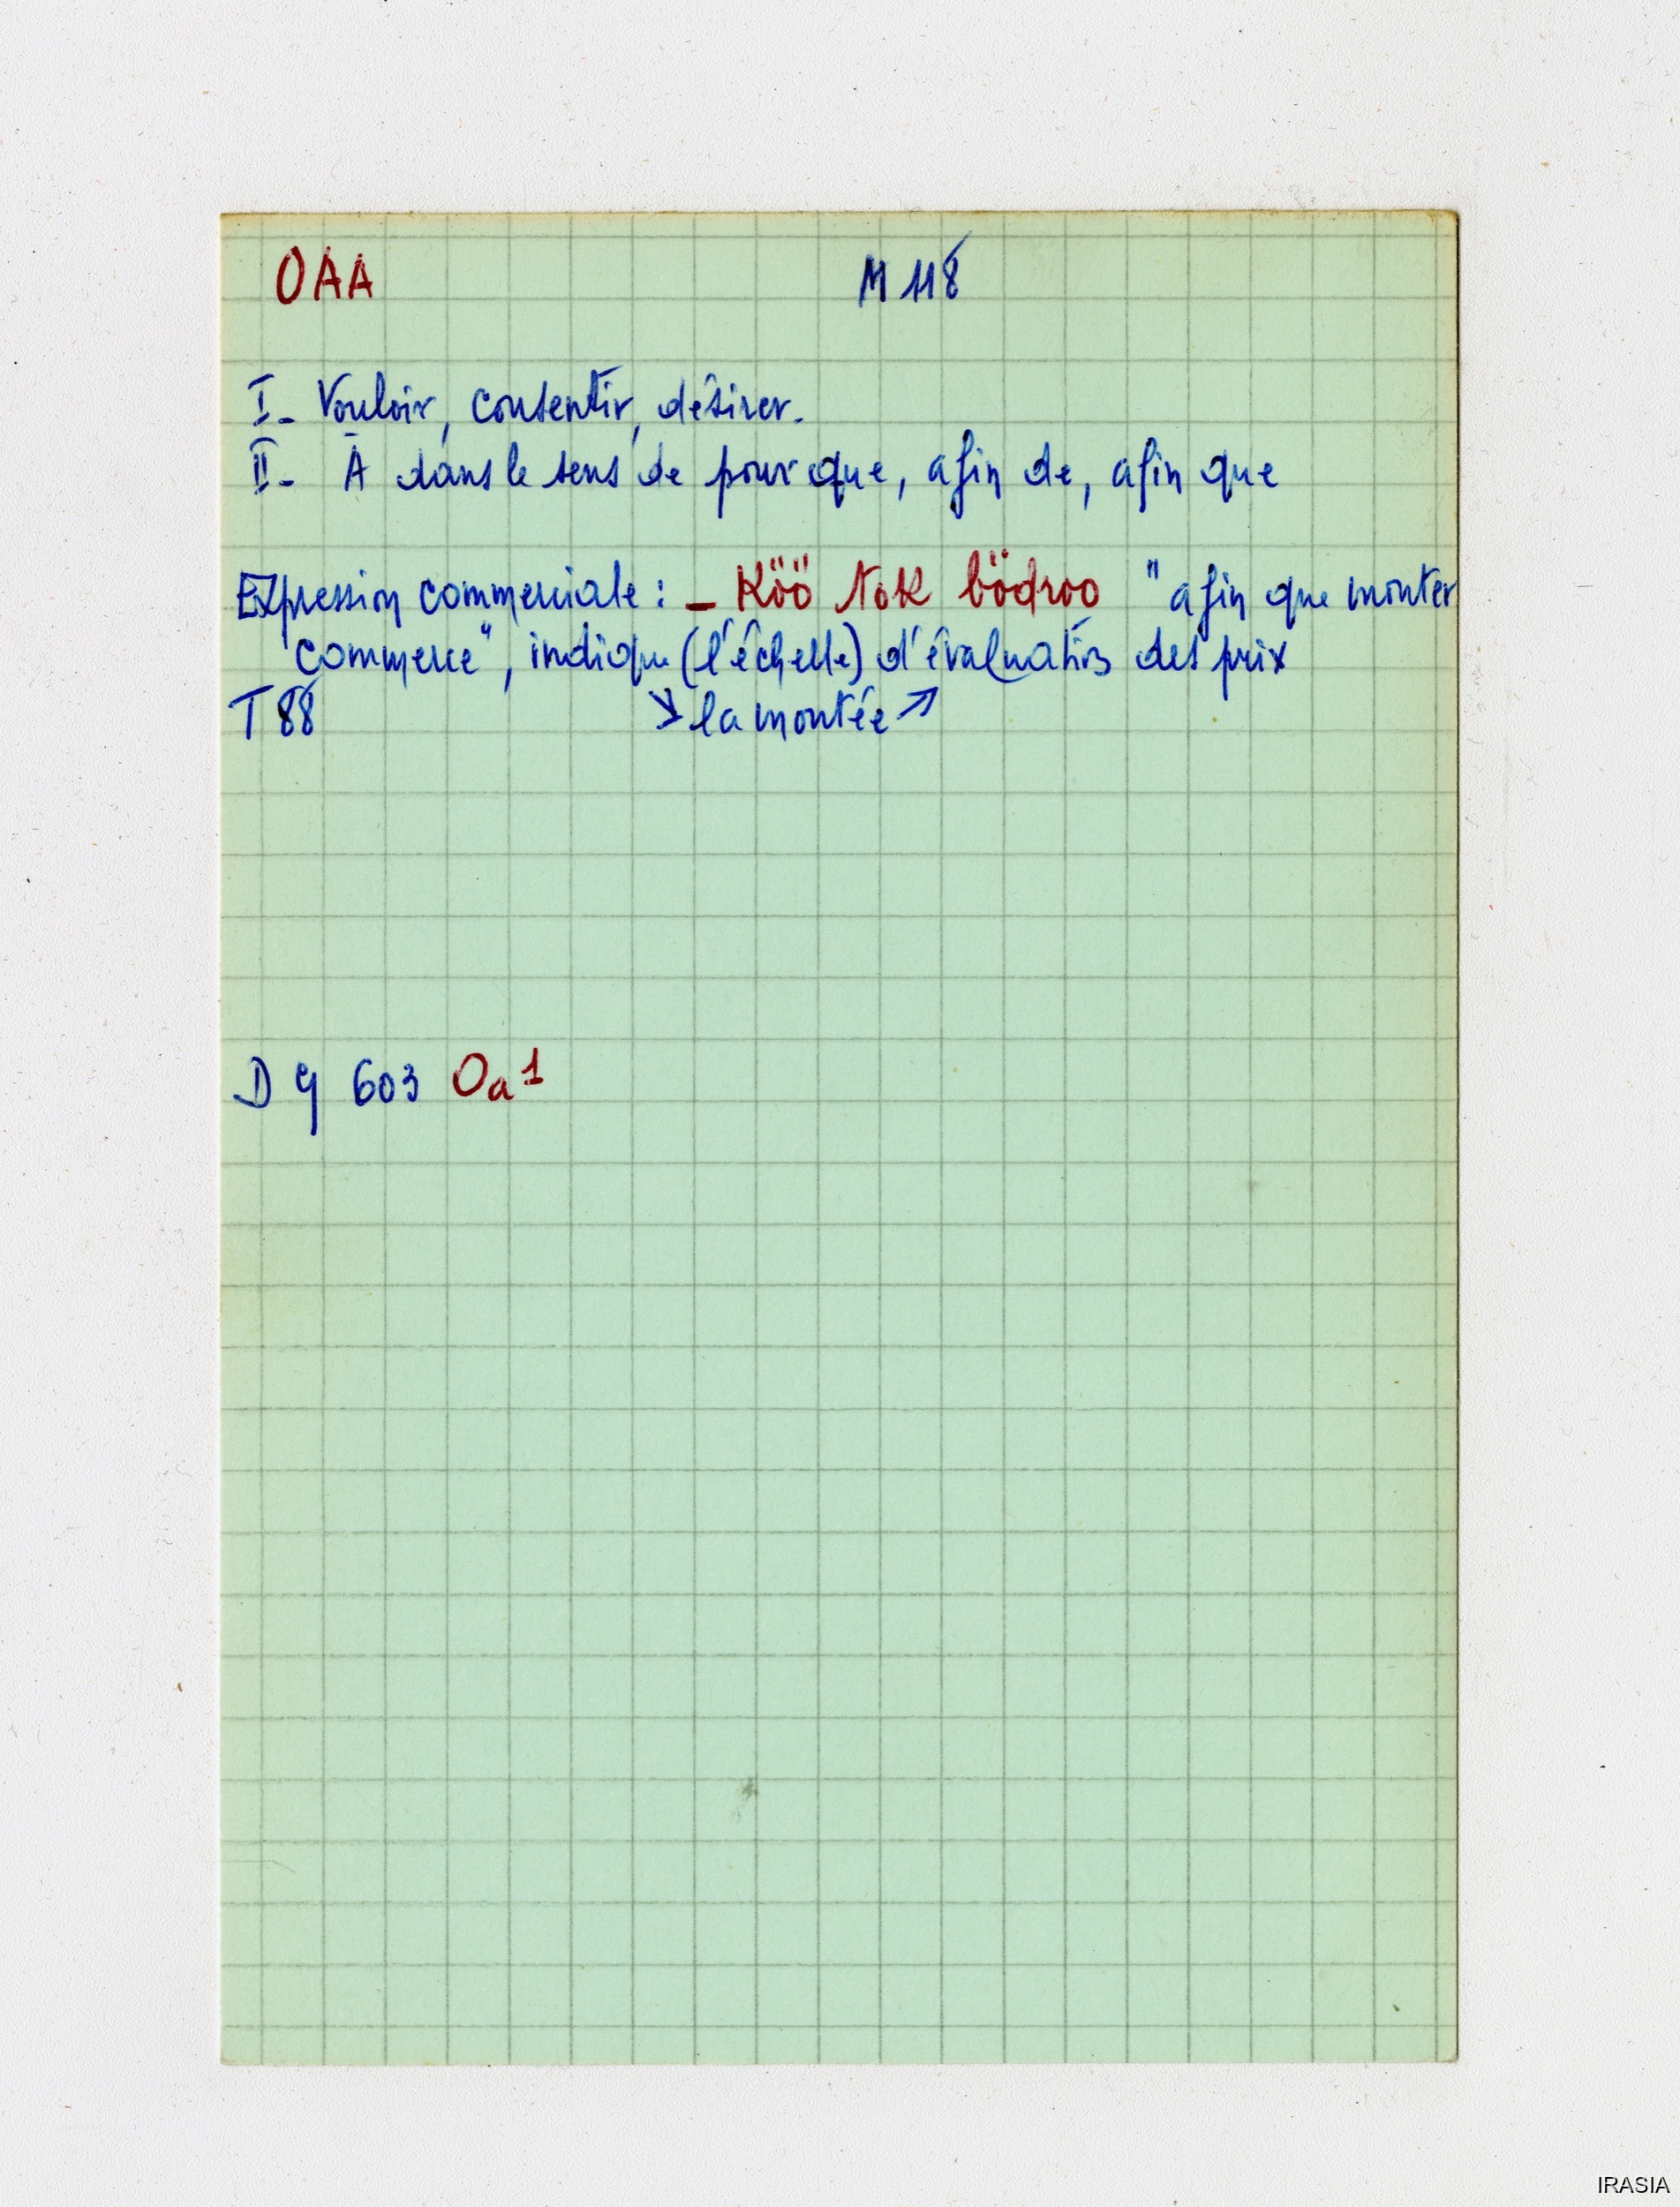 OAA M 118
I- Vouloir, consentir, désirer.
II- À dans le sens de pour que, afin de, afin que
Expression commerciale : – Köö tok bödroo "afin que monter
commerce", indique (l'échelle) d'évaluation des prix
T 88 ↘ la montée ↗
D G 603 Oa 1
IRASIA